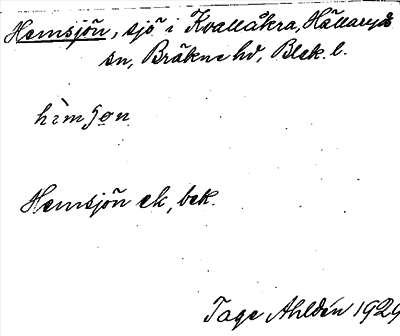 Hemsjön, sjö i Kvallåkra, Hällaryds
sn, Bräkne hd, Blek. l.
hìmʃo̲n
Hemsjön ek, bek.
Tage Ahldén 1929